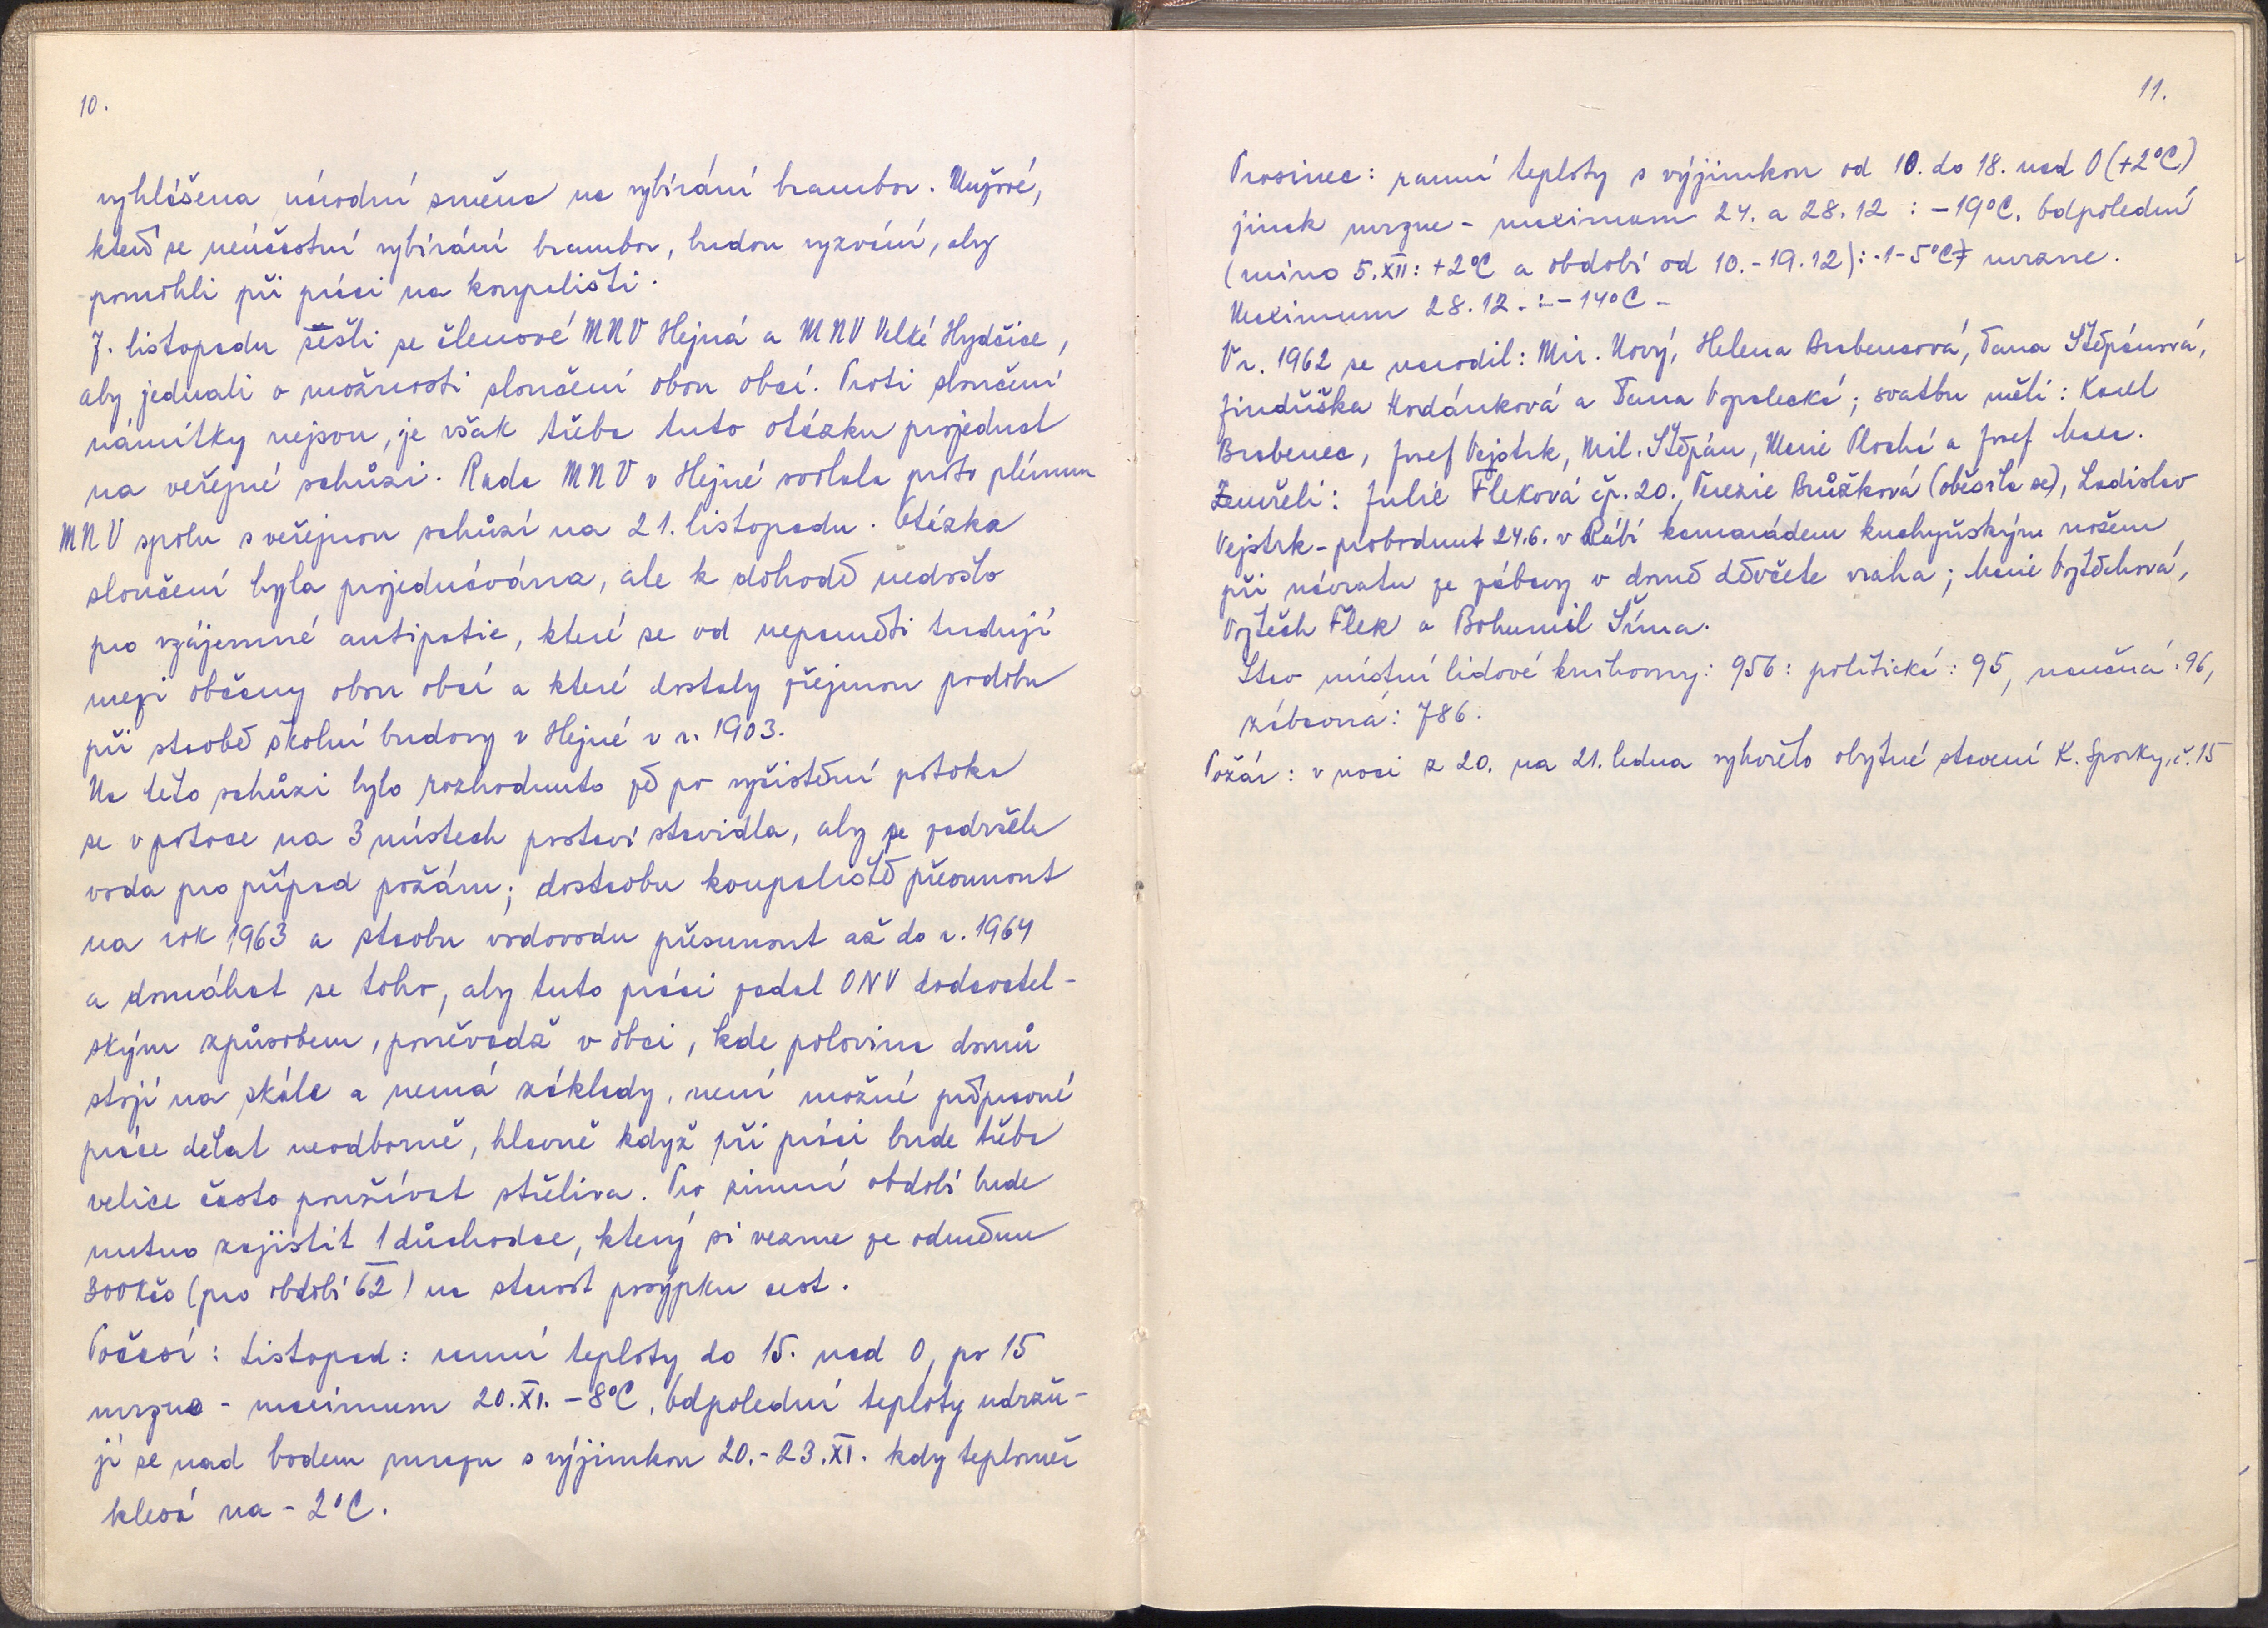 10.
vyhlášena národní směna na vybírání brambor. Mužové,
kteří se neúčastní vybírání brambor, budou vyzváni, aby
pomohli při práci na koupališti.
7. listopadu sešli se členové MNV Hejná a MNV Velké Hydčice,
aby jednali o možnosti sloučení obou obcí. Proti sloučení
námitky nejsou, je však třeba tuto otázku projednat
na veřejné schůzi. Rada MNV v Hejné svolala proto plénum
MNV spolu s veřejnou schůzí na 21. listopadu. Otázka
sloučení byla projednávána, ale k dohodě nedošlo
pro vzájemné antipatie, které se od nepaměti tradují
mezi občany obou obcí a které dostaly zřejmou podobu
při stavbě školní budovy v Hejné v r. 1903.
Na této schůzi bylo rozhodnuto že po vyčistění potoka
se v potoce na 3 místech postaví stavidla, aby se zadržela
voda pro případ požáru; dostavbu koupaliště přesunout
na rok 1963 a stavbu vodovodu přesunout až do r. 1964
a domáhat se toho, aby tuto práci zadal ONV dodavatel-
ským způsobem, poněvadž v obci, kde polovina domů
stojí na skále a nemá základy, není možné přípravné
práce dělat neodborně, hlavně když při práci bude třeba
velice často používat střeliva. Pro zimní období bude
nutno zajistit 1 důchodce, který si vezme za odměnu
300 Kčs (pro období 62) na starost posypku cest.
Počasí: Listopad: ranní teploty do 15. nad 0, po 15
mrzne - maximum 20.XI. -8°C. Odpolední teploty udržu-
jí se nad bodem mrazu s výjimkou 20.-23.XI. kdy teploměr
klesá na -2°C.
11.
Prosinec: ranní teploty s výjimkou od 10. do 18. nad 0 (+2°C)
jinak mrzne - maximum 24. a 28.12 : -19°C. Odpolední
(mimo 5.XII: +2°C a období od 10.-19.12): -1-5°C mrzne.
Maximum 28.12. : -14°C -
V r. 1962 se narodil: Mir. Nový, Helena Brabencová, Dana Štěpánová,
Jindřiška Hordánková a Dana Vopalecká; svatbu měli: Karel
Brabenec, Josef Vejstrk, Mil. Štěpán, Marie Plochá a Josef
Zemřeli: Julie Fleková čp. 20., Terezie Brůžková (oběsila se), Ladislav
Vejstrk - probodnut 24.6. v Rábí kamarádem kuchyňským nožem
při návratu ze zábavy v domě děvčete vraha; Marie Vojtěchová,
Vojtěch Flek a Bohumil Šíma.
Stav místní lidové knihovny: 956: politická: 95, naučná: 96,
zábavná: 786.
Požár: v noci z 20. na 21. ledna vyhořelo obytné stavení K. Sporky, č. 15